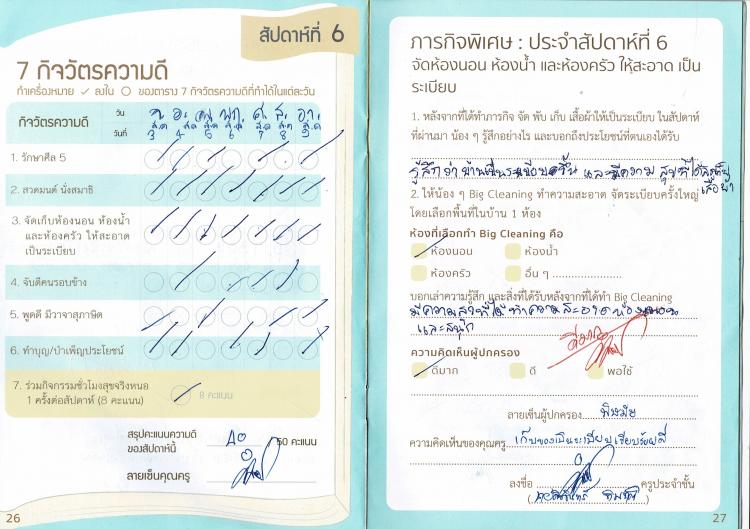 สัปดาห์ที่ 6
7 กิจวัตรความดี
ทำเครื่องหมาย ✓ ลงใน ○ ของตาราง 7 กิจวัตรความดีที่ทำได้ในแต่ละวัน
กิจวัตรความดี
วัน จ. อ. พ. ศ. ส. อา.
วันที่ 3 4 5 6 7 8 9
1. รักษาศีล 5
2. สวดมนต์ นั่งสมาธิ
3. จัดเก็บห้องนอน ห้องน้ำ
และห้องครัว ให้สะอาด
เป็นระเบียบ
4. จับดีคนรอบข้าง
5. พูดดี มีวาจาสุภาษิต
6. ทำบุญ/บำเพ็ญประโยชน์
7. ร่วมกิจกรรมชั่วโมงสุขจริงหนอ
1 ครั้งต่อสัปดาห์ (8 คะแนน)
8 คะแนน
สรุปคะแนนความดี
ของสัปดาห์นี้
40 50 คะแนน
ลายเซ็นคุณครู
26
ภารกิจพิเศษ : ประจำสัปดาห์ที่ 6
จัดห้องนอน ห้องน้ำ และห้องครัว ให้สะอาด เป็น
ระเบียบ
1. หลังจากที่ได้ทำภารกิจ จัด พับ เก็บ เสื้อผ้าให้เป็นระเบียบ ในสัปดาห์
ที่ผ่านมา น้อง ๆ รู้สึกอย่างไร และบอกถึงประโยชน์ที่ตนเองได้รับ
รู้สึกว่าบ้านเป็นระเบียบขึ้น และมีความสุขที่ได้
เสื้อผ้า
2. ให้น้อง ๆ Big Cleaning ทำความสะอาด จัดระเบียบครั้งใหญ่
โดยเลือกพื้นที่ในบ้าน 1 ห้อง
ห้องที่เลือกทำ Big Cleaning คือ
ห้องนอน ห้องน้ำ
ห้องครัว อื่น ๆ ..................
บอกเล่าความรู้สึก และสิ่งที่ได้รับหลังจากที่ได้ทำ Big Cleaning
มีความสุขที่ได้ทำความสะอาดห้องนอน
และสนุก
ความคิดเห็นผู้ปกครอง
ดีมาก ดี พอใช้
ลายเซ็นผู้ปกครอง
ความคิดเห็นของคุณครู เก็บของเป็นระเบียบเรียบร้อยดี
ลงชื่อ ครูประจำชั้น
27